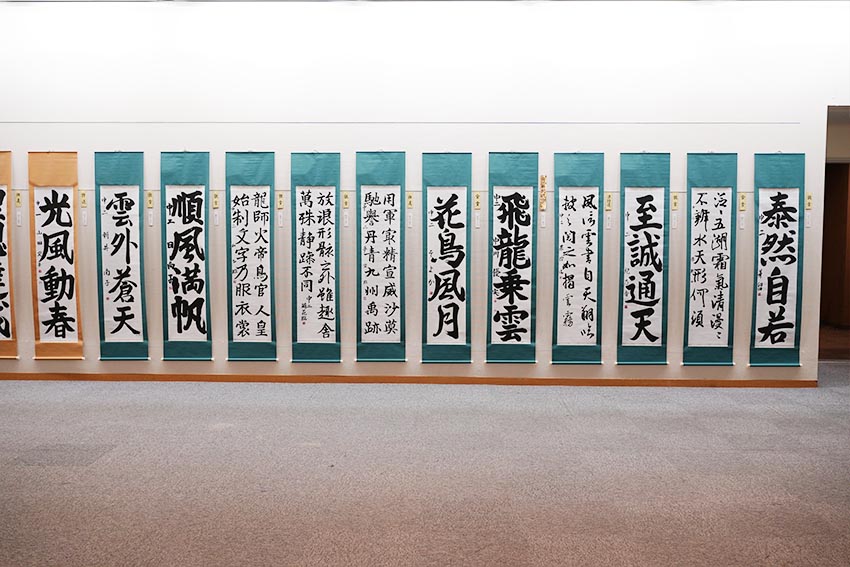 泰然自若
泛〻五湖霜氣清漫〻
不辨水天形何須
至誠通天
風信雲書自天翔臨
披之閲之如揭雲霧
飛龍乗雲
花鳥風月
用軍最精宣威沙漠
馳譽丹青九州禹跡
放浪形骸之外雖趣舍
萬殊静躁不同
龍師火帝鳥官人皇
始制文字乃服衣裳
順風満帆
雲外蒼天
光風動春